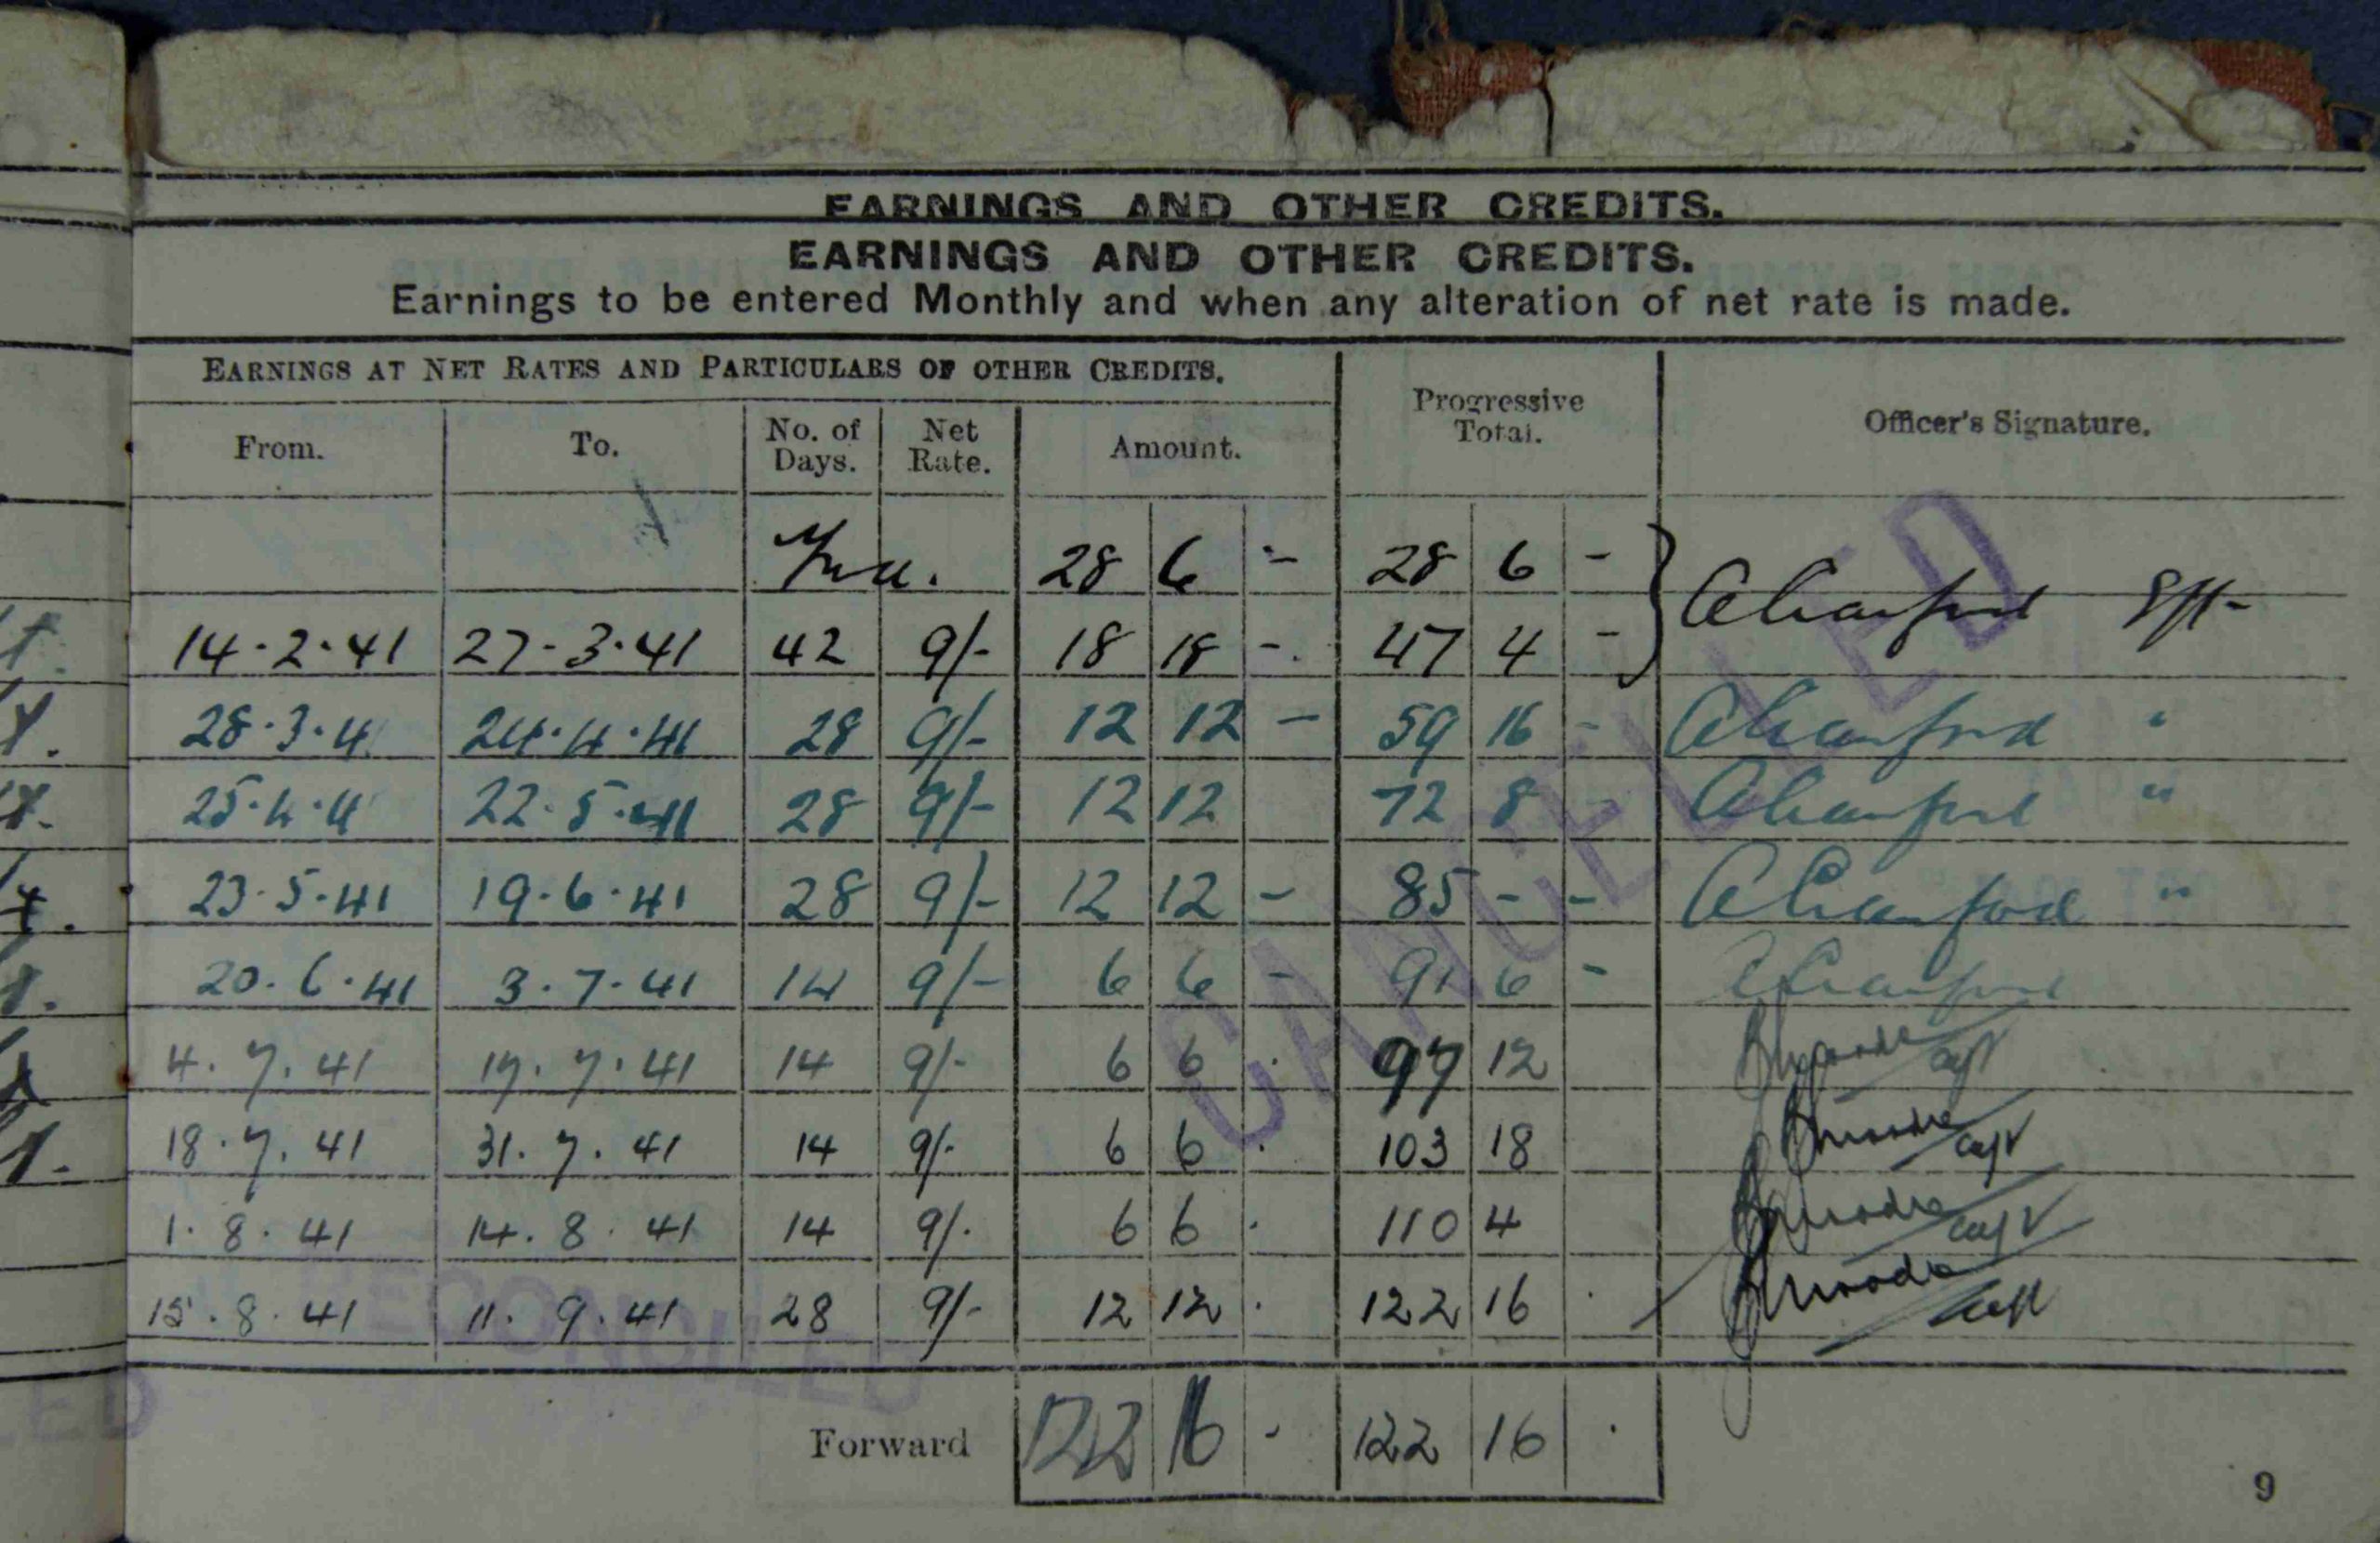 EARNINGS AND OTHER CREDITS.
EARNINGS AND OTHER CREDITS.
Earnings to be entered Monthly and when any alteration of net rate is made.
EARNINGS AT NET RATES AND PARTICULARS OF OTHER CREDITS. Progressive Total. Officer's Signature.
From. To. No. of Days. Net Rate. Amount.
28 6 - 28 6 -
14.2.41 27-3.41 42 9/- 18 18 - 47 4 -
28.3.41 24.4.41 28 9/- 12 12 - 59 16 -
25.4.41 22.5.41 28 9/- 12 12 72 8 - "
23.5.41 19.6.41 28 9/- 12 12 - 85 - - "
20.6.41 3.7.41 14 9/- 6 6 - 91 6 -
4.7.41 17.7.41 14 9/- 6 6 . 97 12 Capt
18.7.41 31.7.41 14 9/- 6 6 . 103 18 Capt
1.8.41 14.8.41 14 9/- 6 6 . 110 4 Capt
15.8.41 11.9.41 28 9/- 12 12 . 122 16 . Capt
Forward 122 16 - 122 16 .
CANCELLED
RECONCILED
9